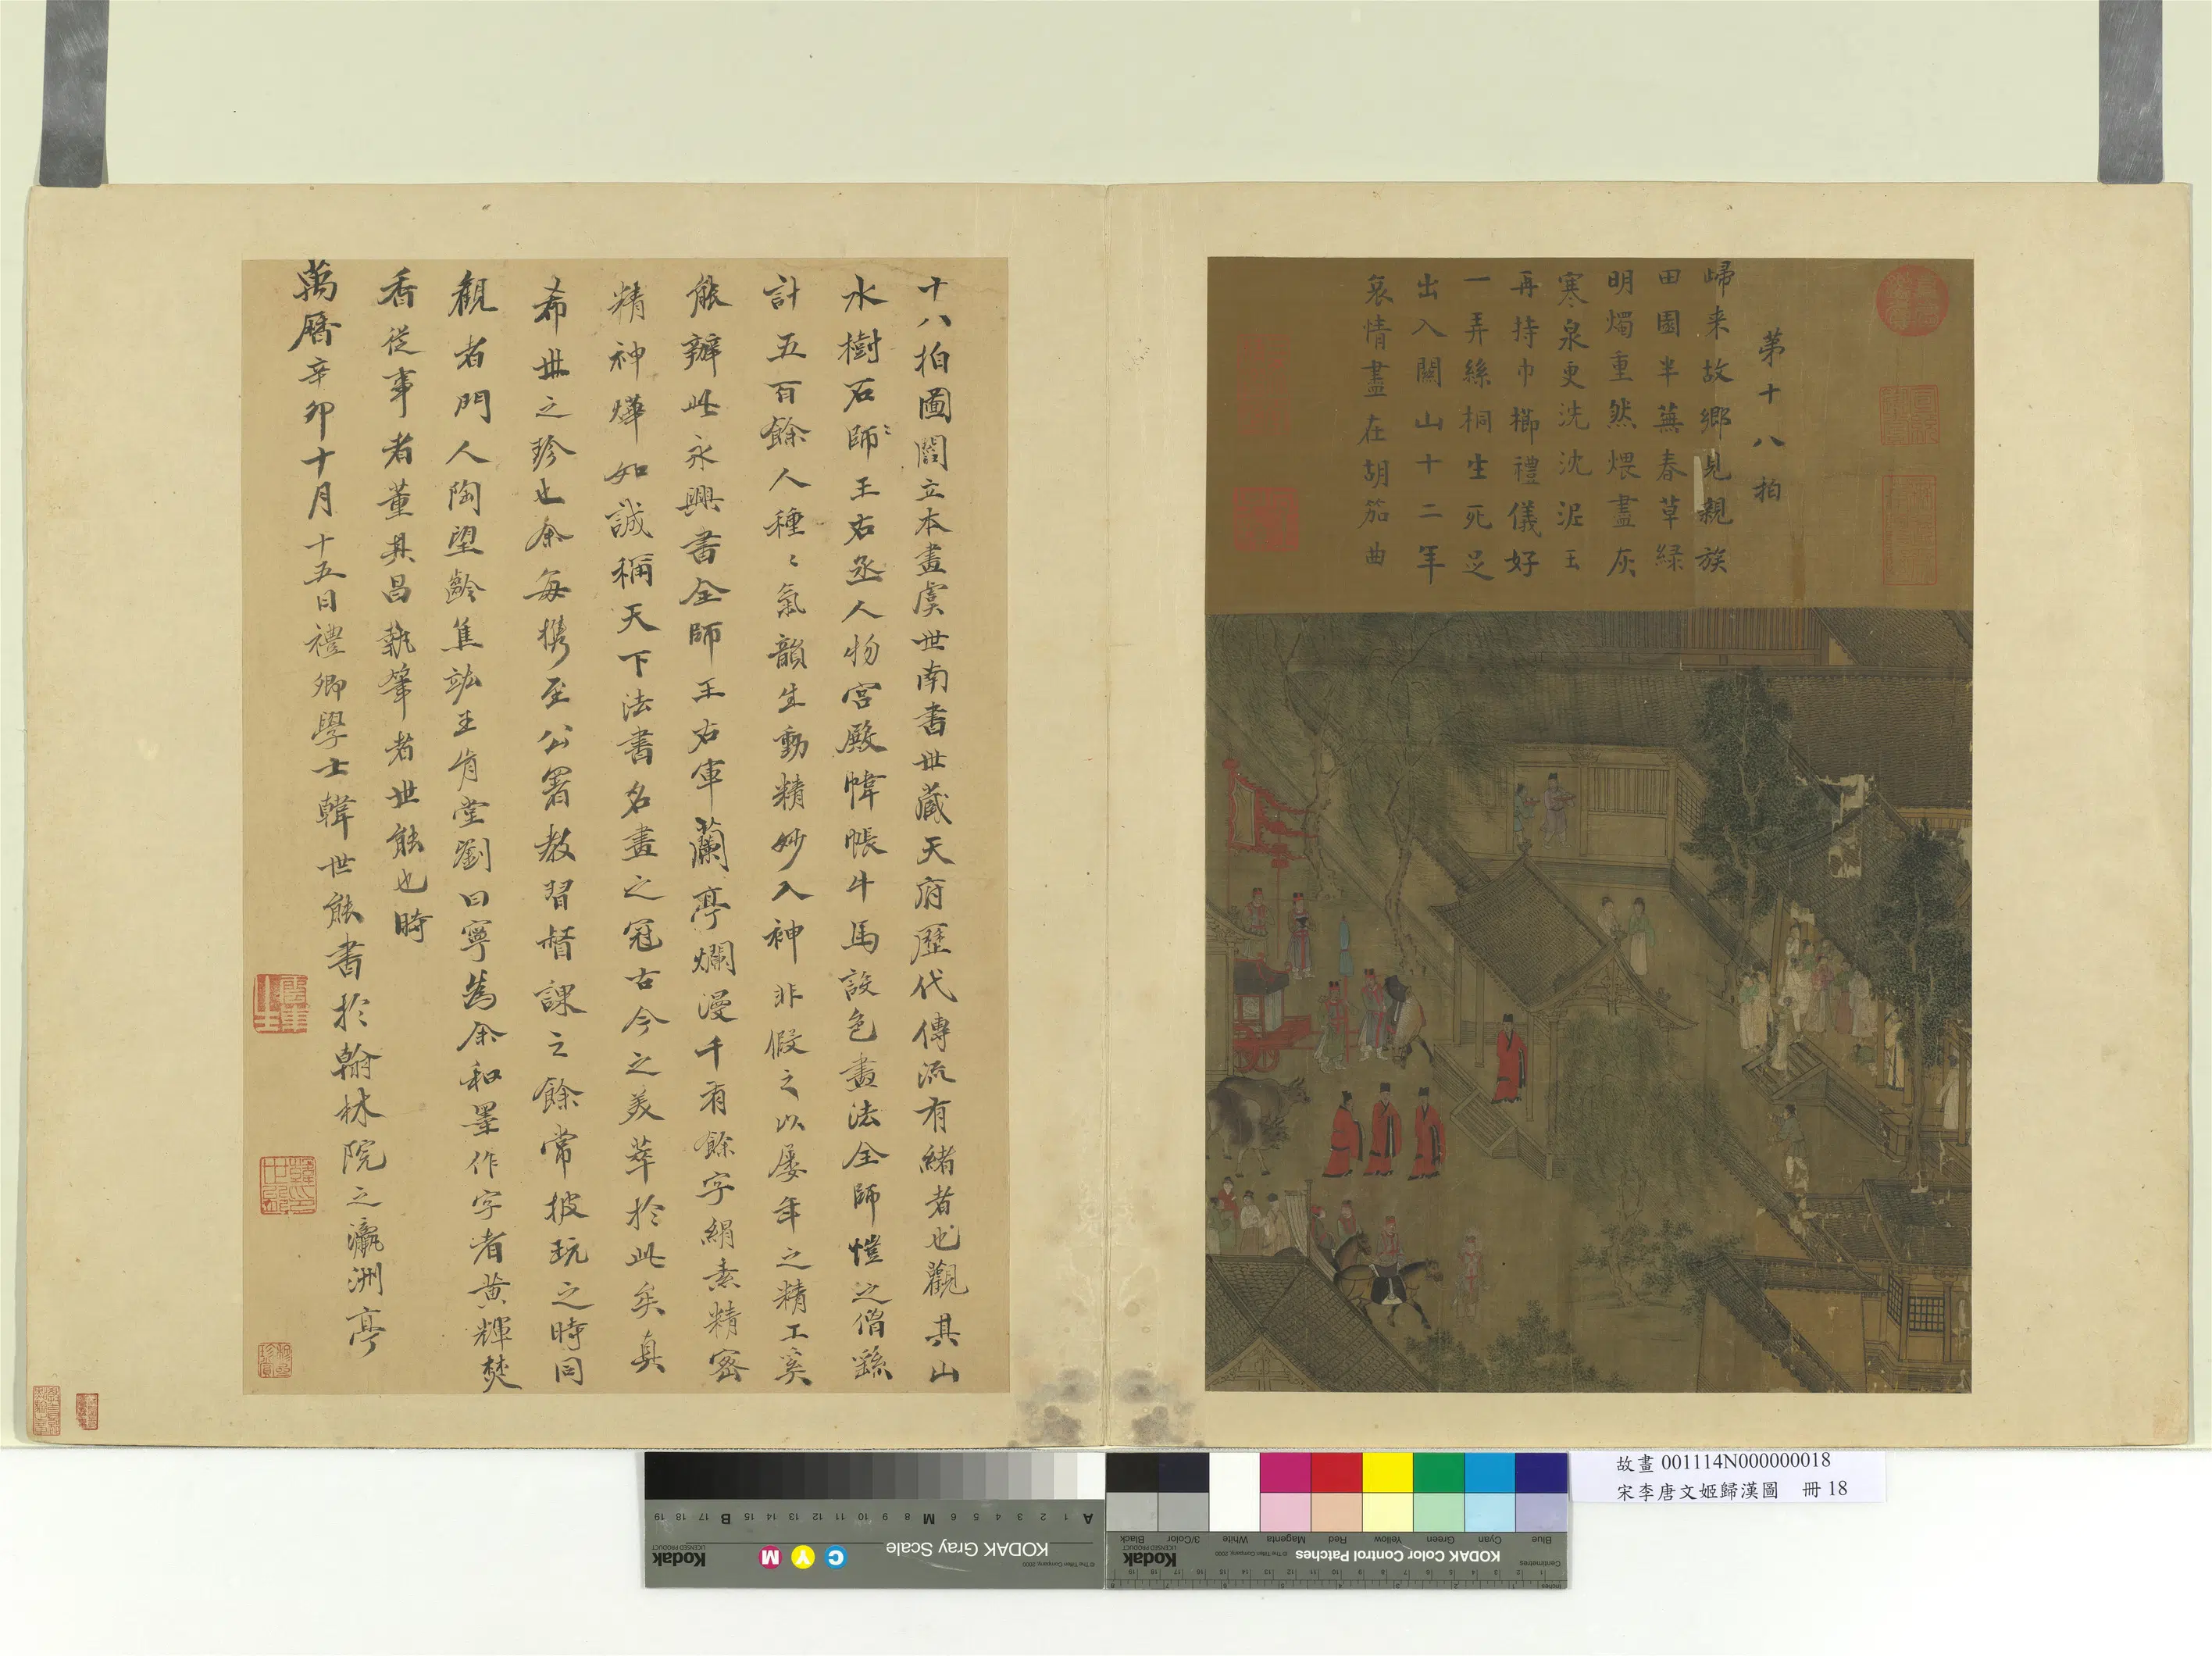 第十八拍
歸来故郷見親族
田園半蕪春草緑
明燭重然煨盡灰
寒泉更洗沈泥玉
再持巾櫛禮儀好
一弄絲桐生死足
出入關山十二年
哀情盡在胡笳曲
十八拍圖閻立本畫虞世南書世藏天府歷代傳流有緒者也觀其山
水樹石師王右丞人物宮殿幃帳牛馬設色畫法全師愷之僧繇
計五百餘人種〻氣韻生動精妙入神非假之以屡年之精工奚
能辦此永興書全師王右軍蘭亭爛漫千有餘字絹素精密
精神燁如誠稱天下法書名畫之冠古今之美萃於此矣真
希世之珍也余每攜至公署教習督課之餘常披玩之時同
觀者門人陶望齡焦竑王肯堂劉曰寧為余和墨作字者黄輝焚
香從事者董其昌執筆者世能也時
萬曆辛卯十月十五日禮卿學士韓世能書於翰林院之瀛洲亭
故畫001114N000000018
宋李唐文姬歸漢圖 冊18
A 1 2 3 4 5 6 M 8 9 10 11 12 13 14 15 B 17 18 19
KODAK Gray Scale
C Y M
Kodak
LICENSED PRODUCT
© The Tiffen Company, 2000
Blue Cyan Green Yellow Red Magenta White 3/Color Black
KODAK Color Control Patches
© The Tiffen Company, 2000
Kodak
LICENSED PRODUCT
Centimetres
Inches